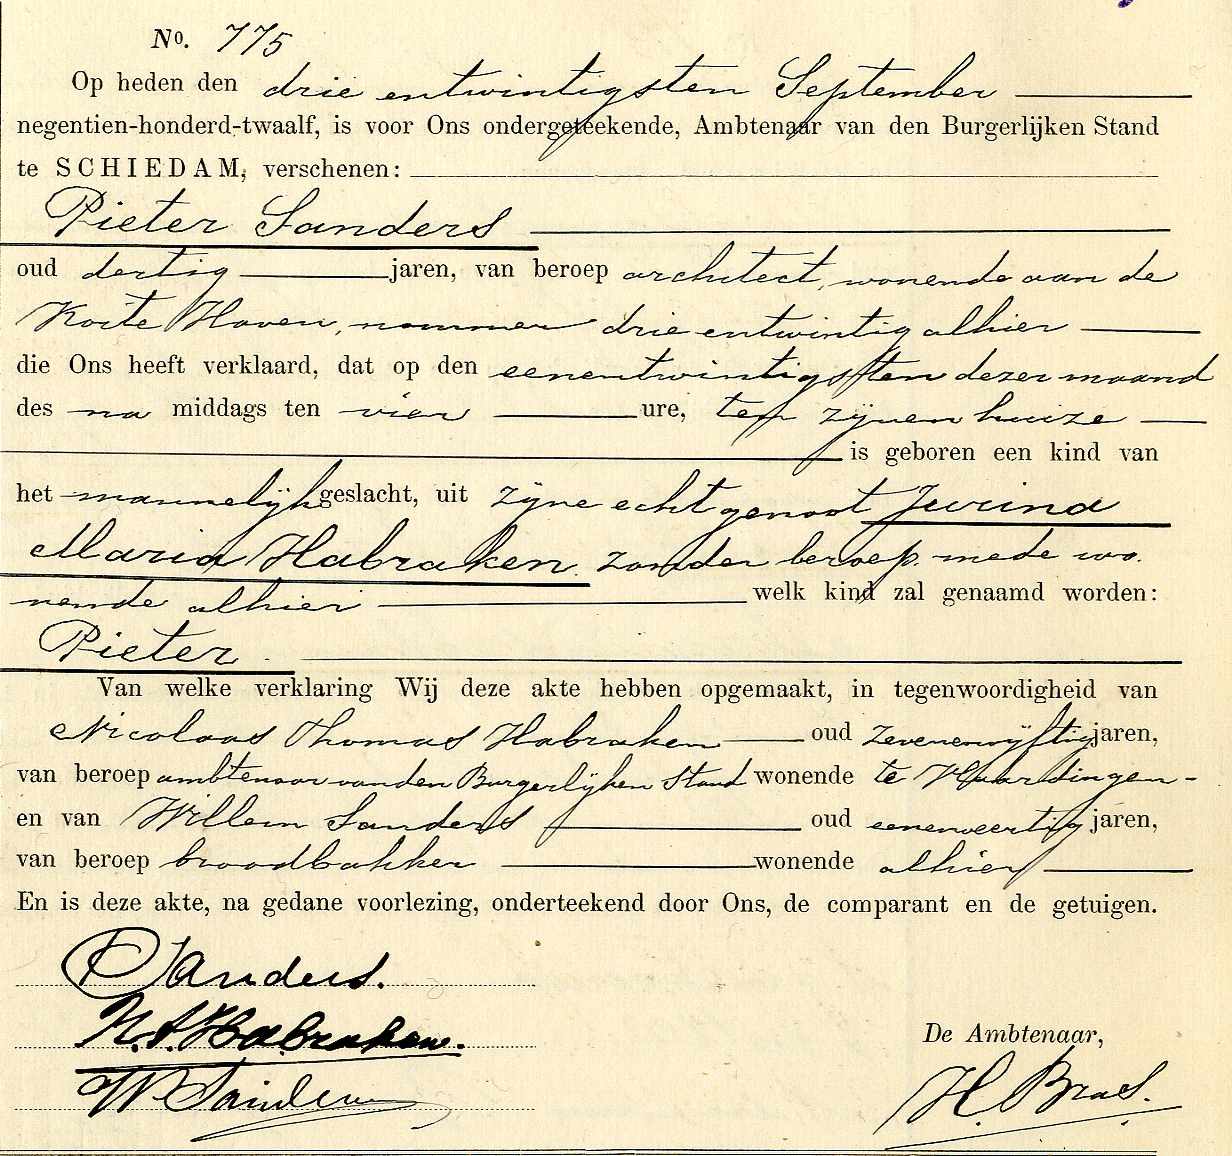 No. 775
Op heden den drie entwintigsten September
negentien-honderd-twaalf, is voor Ons ondergeteekende, Ambtenaar van den Burgerlijken Stand
te SCHIEDAM, verschenen:
Pieter Sanders
oud dertig jaren, van beroep architect, wonende aan de
Korte Haven, nommer drie entwintig alhier
die Ons heeft verklaard, dat op den eenentwintigsten dezer maand
des na middags ten vier ure, ten zijnen huize
is geboren een kind van
het mannelijk geslacht, uit zijne echtgenoot Jurina
Maria Habraken, zonder beroep, mede wo.
nende alhier welk kind zal genaamd worden:
Pieter.
Van welke verklaring Wij deze akte hebben opgemaakt, in tegenwoordigheid van
Nicolaas Thomas Habraken oud zevenenvijftig jaren,
van beroep ambtenaar van den Burgerlijken Stand wonende te Vlaardingen -
en van Willem Sanders oud eenenveertig jaren,
van beroep broodbakker wonende alhier
En is deze akte, na gedane voorlezing, onderteekend door Ons, de comparant en de getuigen.
P Sanders.
N. T. Habraken.
De Ambtenaar,
W Sanders
H. Bras.